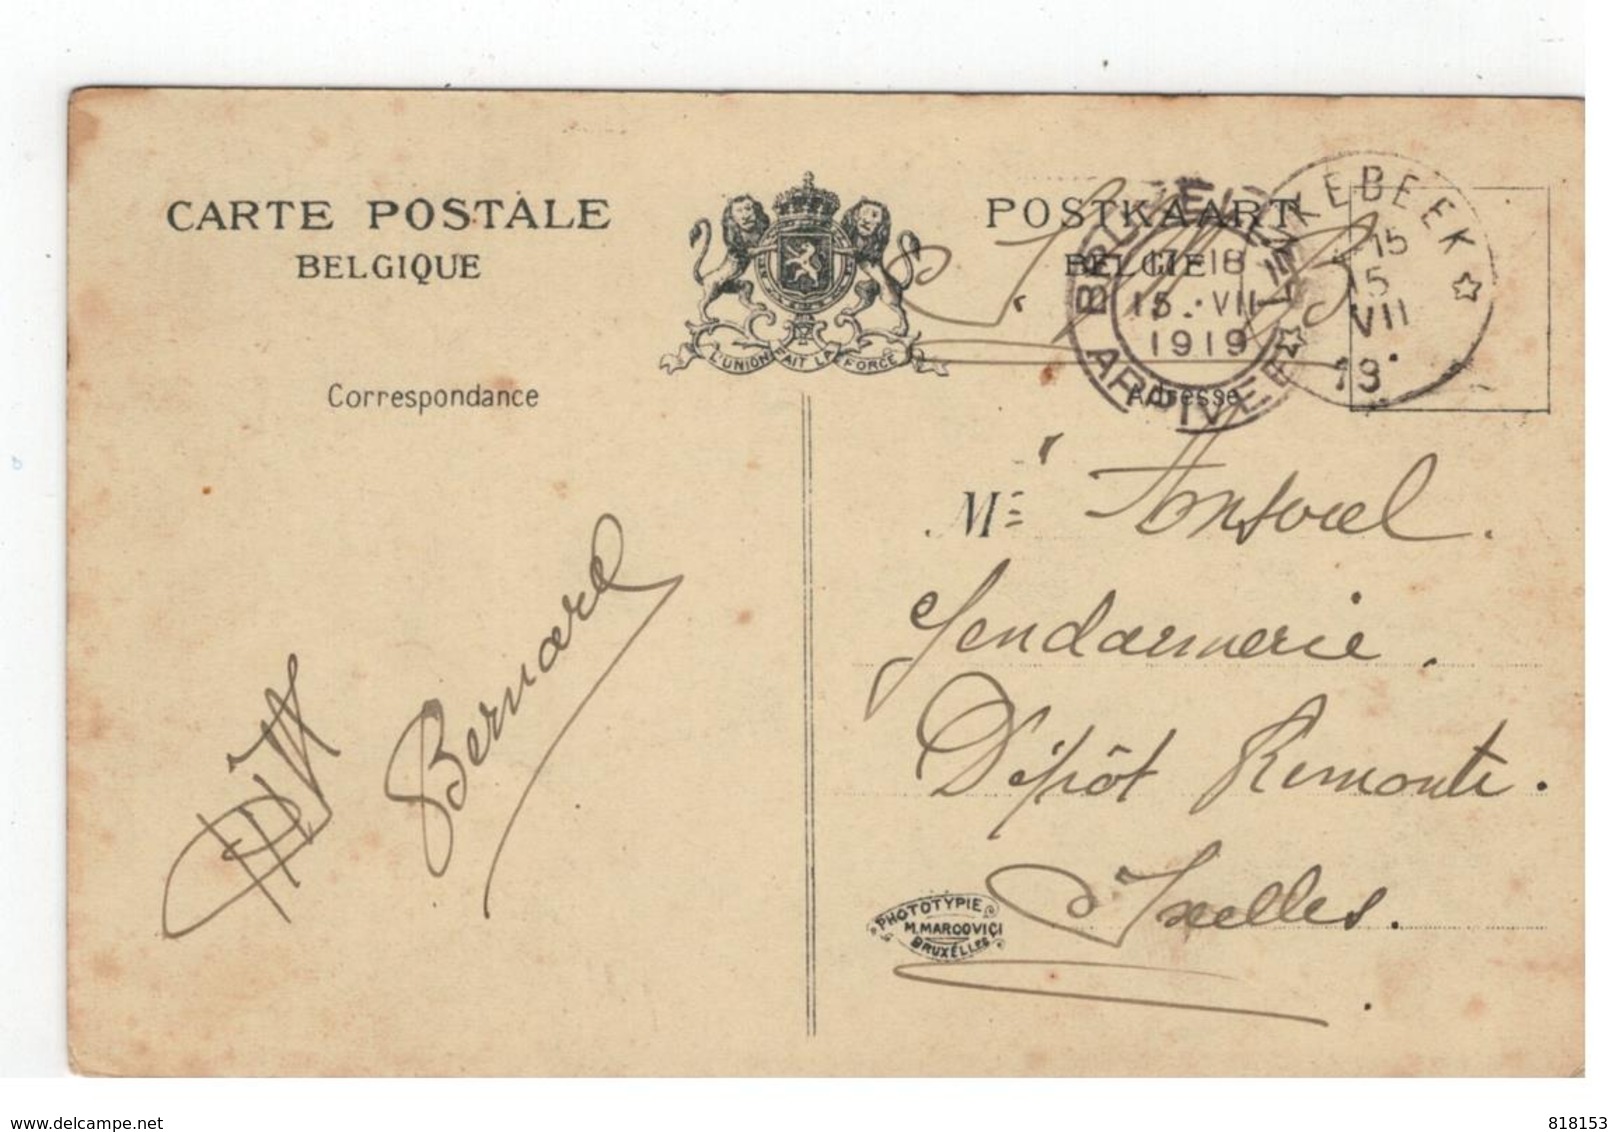 CARTE POSTALE
BELGIQUE
L'UNION FAIT LA FORCE
POSTKAART
BELGIE
LINKEBEEK
15
15
VII
19
17-18
15·VII
1919
ARRIVEE
Correspondance
Adresse
Bernard
Mr
Gendarmerie.
Dépôt Remonte.
Ixelles.
PHOTOTYPIE
M. MARCOVICI
BRUXELLES
www.delcampe.net
818153